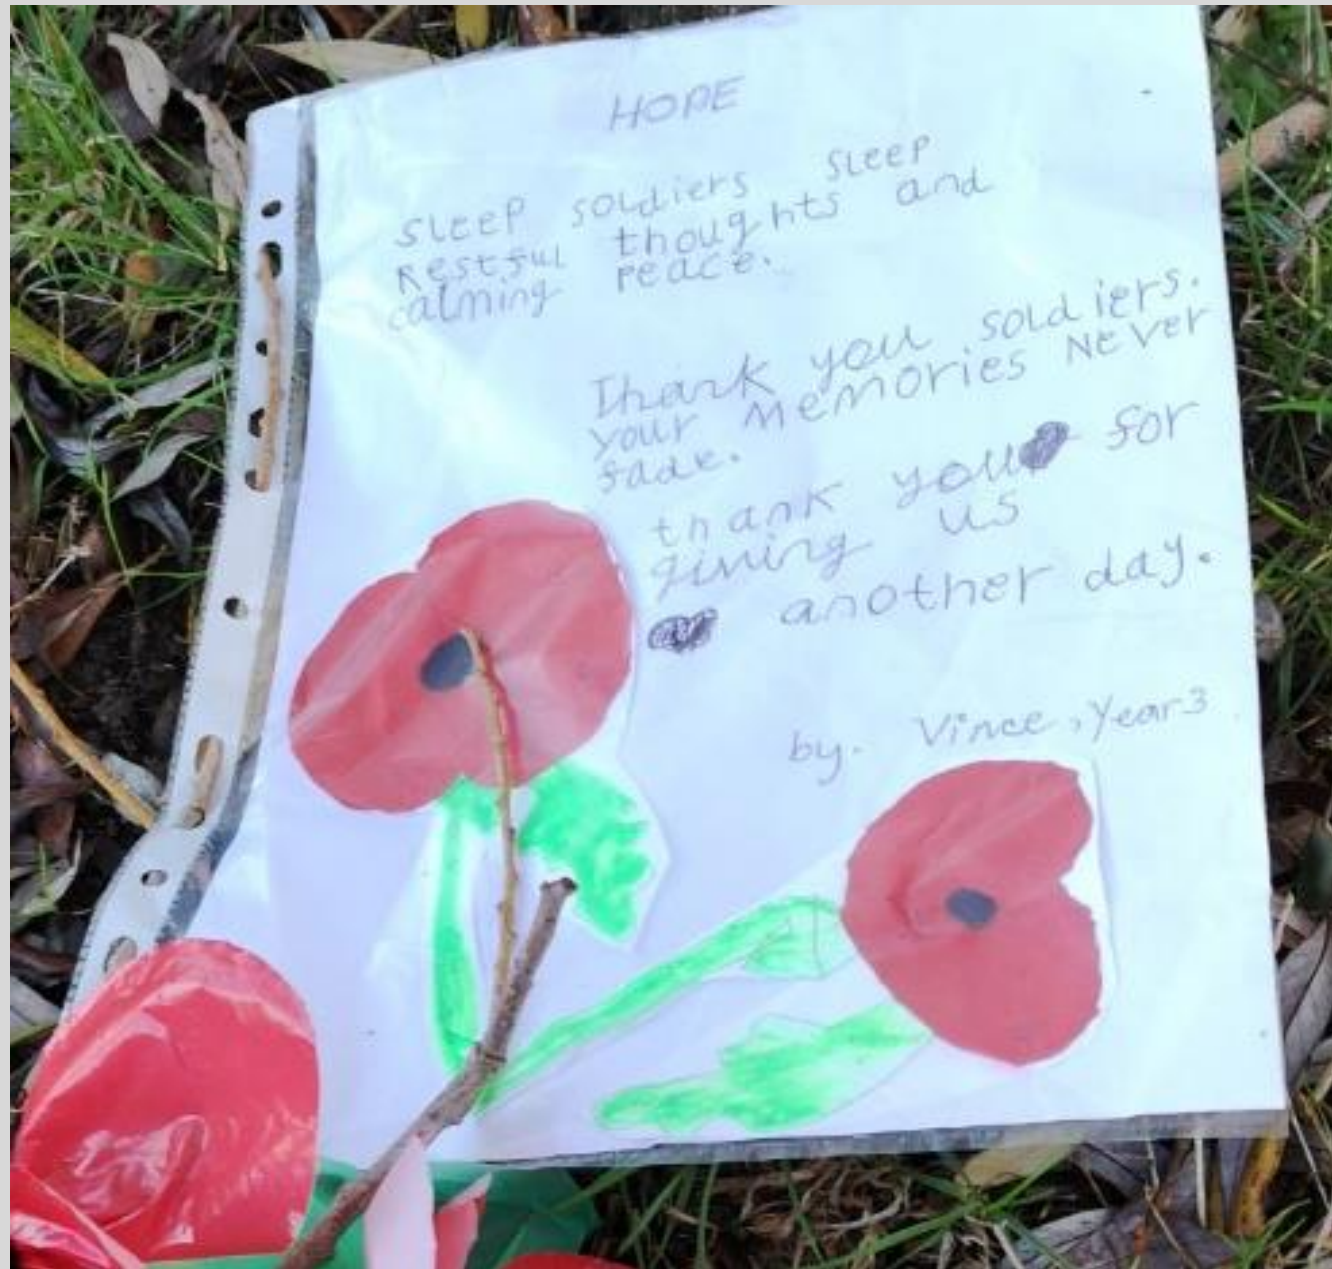 HOPE
Sleep soldiers sleep
Restful thoughts and
calming peace.
Thank you soldiers.
your Memories Never
fade.
thank you for
giving us
another day.
by. Vince, Year 3